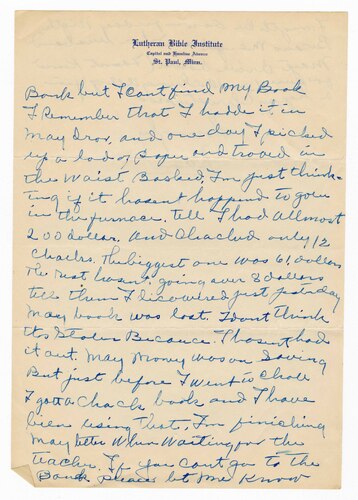 Lutheran Bible Institute
Capitol and Hamline Avenue
St. Paul, Minn.
Bank but I Cant find My Book
I Remember that I hadde it in
May Dror, and one day I picked
up a lod of Paper and troved in
the Waist Basked, I'm just think-
ing if it hasent happend to goen
in the furnace. tell I had allmost
200 dollar. and Chacked only 12
Chacks. The biggest one was 61. dollars
the rest hasent going over 8 dollars
tell them I dicowered just yestaday
May book was lost. I dont think
its Stolen Becaurse I hasent had
it out. May Money was on Saving
But just before I went to
I got a Chack book and I have
been using that, I'm finishing
May letter When Waiting for the
teacher. If you cant go to the
Bank please let me know